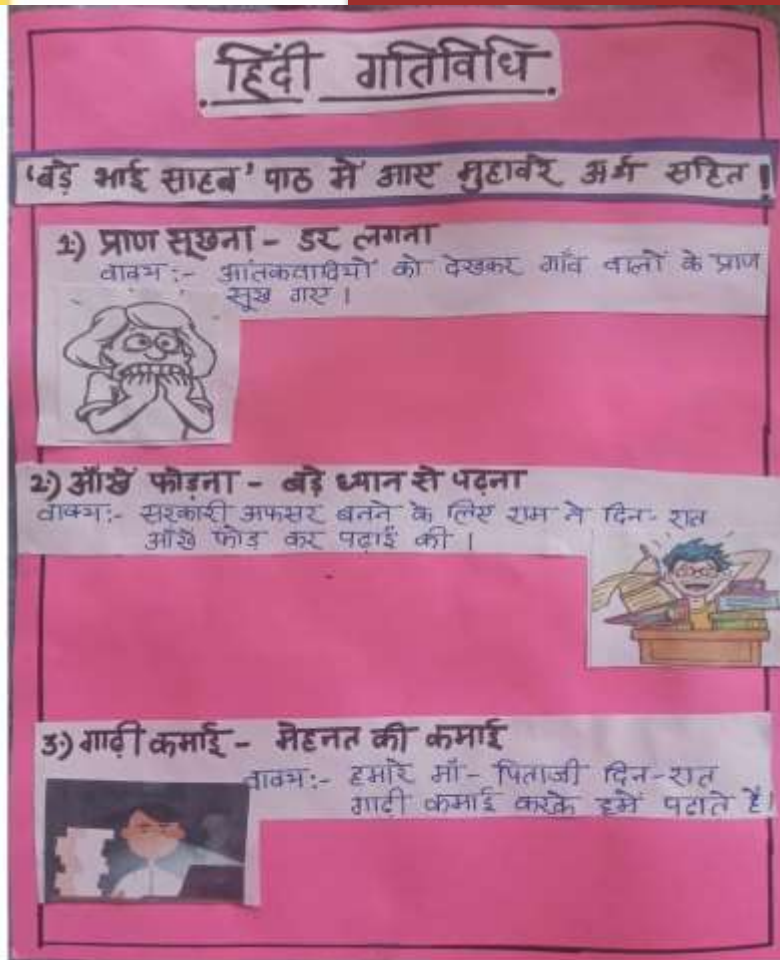 हिंदी गतिविधि
'बड़े भाई साहब' पाठ में आए मुहावरे अर्थ सहित।
1) प्राण सूखना - डर लगना
वाक्य :- आंतकवादियों को देखकर गाँव वालों के प्राण
सूख गए।
2) आँखें फोड़ना - बड़े ध्यान से पढ़ना
वाक्य:- सरकारी अफसर बनने के लिए राम ने दिन-रात
आँखे फोड़ कर पढ़ाई की।
3) गाढ़ी कमाई - मेहनत की कमाई
वाक्य:- हमारे माँ-पिताजी दिन-रात
गाढी कमाई करके हमें पढाते है।